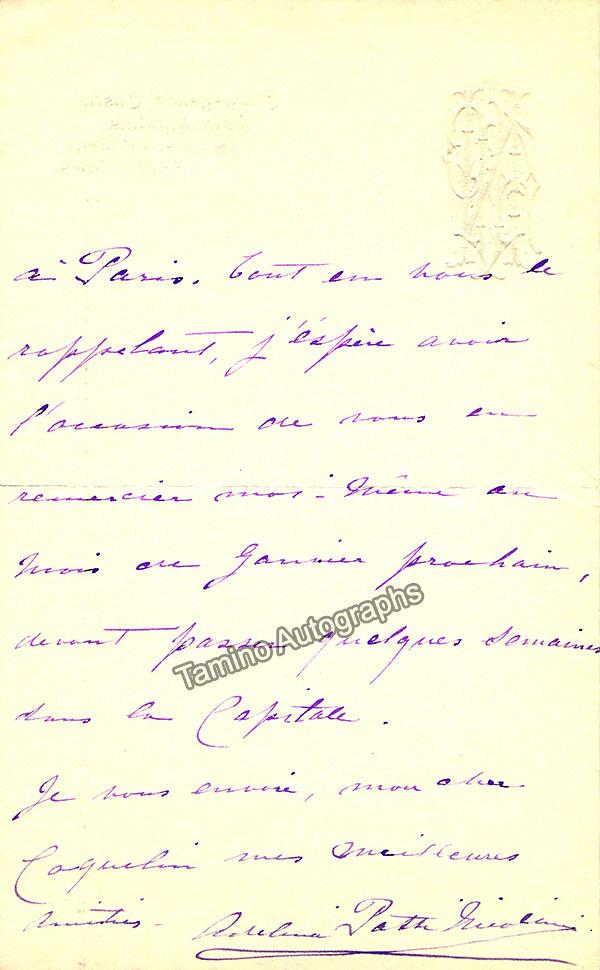 à Paris. Tout en vous le
rappelant, j'éspère avoir
l'occasion de vous en
remercier moi-Même au
Mois de Janvier prochain,
devant passer quelques Semaines
dans la Capitale.
Je vous envoie, mon cher
Coquelin mes meilleures
Amitiés - Adelina Patti Nicolini
Tamino Autographs